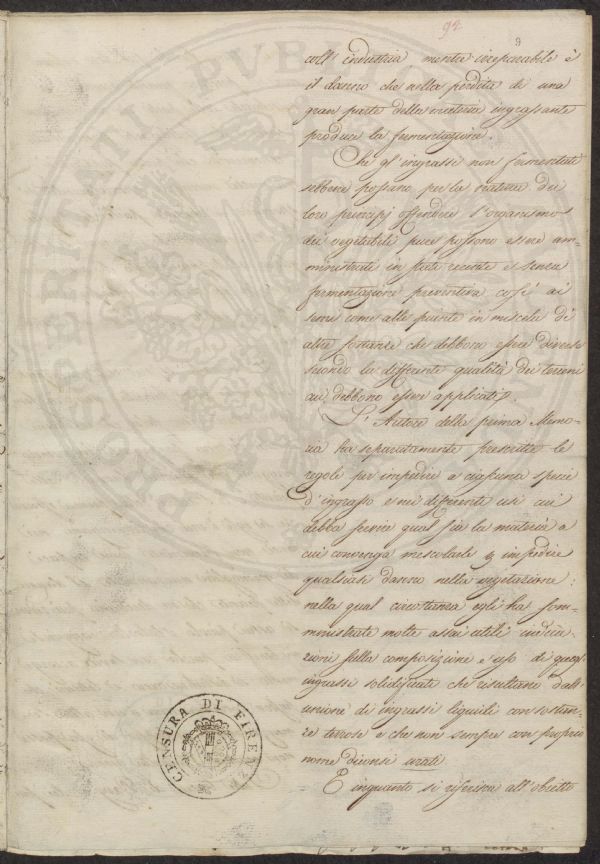 94
9
coll' industria, mentre ireparabile è
il danno che nella perdita di una
gran parte della materia ingrassante
produce la fermentazione.
Che gl' ingrassi non fermentati
sebbene possano per la natura dei
loro principj offendere l'organismo
dei vegetabili pure possono essere am=
ministrati in stato recente e senza
fermentazione preventiva così ai
semi come alle piante in miscela di
altre sostanze che debbono essere diverse
secondo la differente qualità dei terreni
cui debbono essere applicati.
L' Autore della prima Memo=
ria ha separatamente prescritte le
regole per impedire a ciascuna specie
d'ingrasso e nei differenti usi cui
debba servire qual sia la materia a
cui convenga mescolarli impedire
qualsiasi danno nella vegetazione:
nella qual circostanza egli ha som=
ministrate molte assai utili indica=
zioni sulla composizione e uso di quegl'
ingrassi solidificati che risultano dall'
unione di ingrassi liquidi con sostan=
ze terrose e che non sempre con proprio
nome diconsi urati.
E inquanto si riferisce all' obietto
CENSURA DI FIRENZE
PROSPERITATI PVBLI